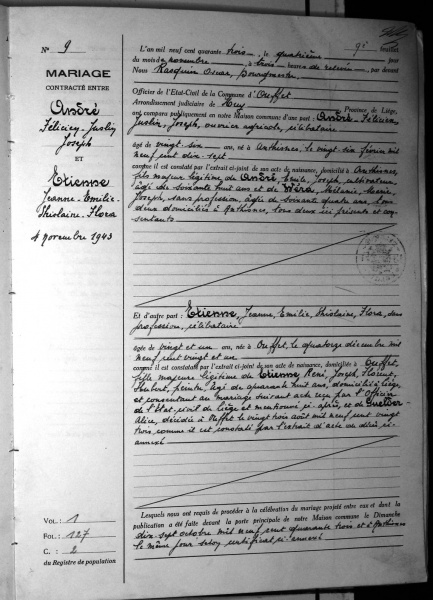 N° 9
MARIAGE
CONTRACTÉ ENTRE
André
Félicien-Justin
Joseph
ET
Etienne
Jeanne-Emilie-
Ghislaine-Flora
4 novembre 1943
VOL: 1
FOL: 127
C.: 2
du Registre de population
L'an mil neuf cent quarante trois, le quatrième jour
du mois de novembre à trois heures de relevée, par devant
Nous Rasquin Oscar, bourgmestre
Officier de l'Etat-Civil de la Commune d'Ouffet
Arrondissement judiciaire de Huy, Province de Liège,
ont comparu publiquement en notre Maison commune d'une part: André-Félicien
Justin, Joseph, ouvrier agricole, célibataire
âgé de vingt-six ans, né à Anthisnes, le vingt six février mil
neuf cent dix-sept
comme il est constaté par l'extrait ci-joint de son acte de naissance, domicilié à Anthisnes,
fils majeur légitime de André, Emile, Joseph, cultivateur,
âgé de soixante huit ans et de Wéra, Mélanie, Marie,
Joseph, sans profession, âgée de soixante quatre ans, tous
deux domiciliés à Anthisnes, tous deux ici présents et con-
sentants
Et d'autre part: Etienne, Jeanne, Emilie, Ghislaine, Flora, sans
profession, célibataire
âgée de vingt et un ans, née à Ouffet, le quatorze décembre mil
neuf cent vingt et un
comme il est constaté par l'extrait ci-joint de son acte de naissance, domiciliée à Ouffet,
fille majeure légitime de Etienne, René, Joseph,
Hubert, peintre, âgé de quarante huit ans, domicilié à Liège,
et consentant au mariage suivant acte reçu par l'Officier
de l'état-civil de Liège et mentionné ci-après, et de
Alice, décédée à Ouffet le vingt trois août mil neuf cent vingt
trois, comme il est constaté par l'extrait d'acte de décès ci-
annexé
Lesquels nous ont requis de procéder à la célébration du mariage projeté entre eux et dont la
publication a été faite devant la porte principale de notre Maison commune le Dimanche
dix-sept octobre mil neuf cent quarante trois et à Anthisnes
le même jour selon certificat ci-annexé